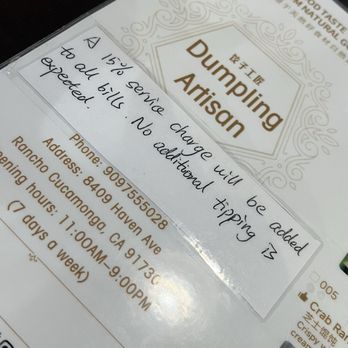 OD TASTE
M NATURAL
饺子工匠
Dumpling
Artisan
A 15% service charge will be added
to all bills. No additional tipping is
expected.
Phone: 9097555028
Address: 8409 Haven Ave
Rancho Cucamonga, CA 9173
ening hours: 11:00AM-9:00PM
(7 days a week)
005
Crab Ran
芝士馄饨